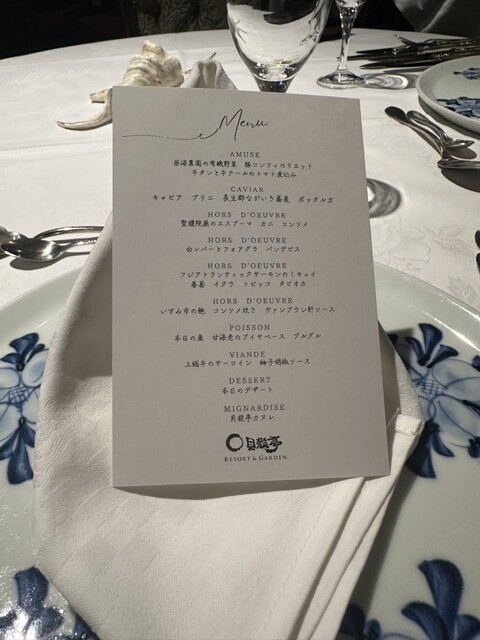 Menu
AMUSE
柴海農園の有機野菜 豚コンフィのリエット
牛タンと牛テールのトマト煮込み
CAVIAR
キャビア ブリニ 長生郡ながいき蕎麦 ボッタルガ
HORS D'OEUVRE
聖護院蕪のエスプーマ カニ コンソメ
HORS D'OEUVRE
白レバーとフォアグラ パンデピス
HORS D'OEUVRE
フジアトランティックサーモンのミキュイ
春菊 イクラ トビッコ タピオカ
HORS D'OEUVRE
いすみ市の鮑 コンソメ炊き ヴァンブラン肝ソース
POISSON
本日の魚 甘海老のブイヤベース ブルグル
VIANDE
上総牛のサーロイン 柚子胡椒ソース
DESSERT
本日のデザート
MIGNARDISE
貝殻亭カヌレ
貝殻亭
RESORT & GARDEN